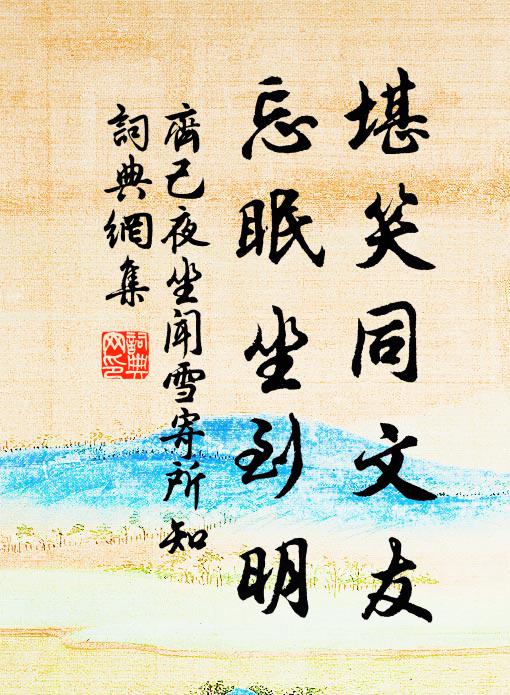 堪笑同文友
忘眠坐到明
齊己夜坐闻雪寄所知
詞典網集
詞典
网印